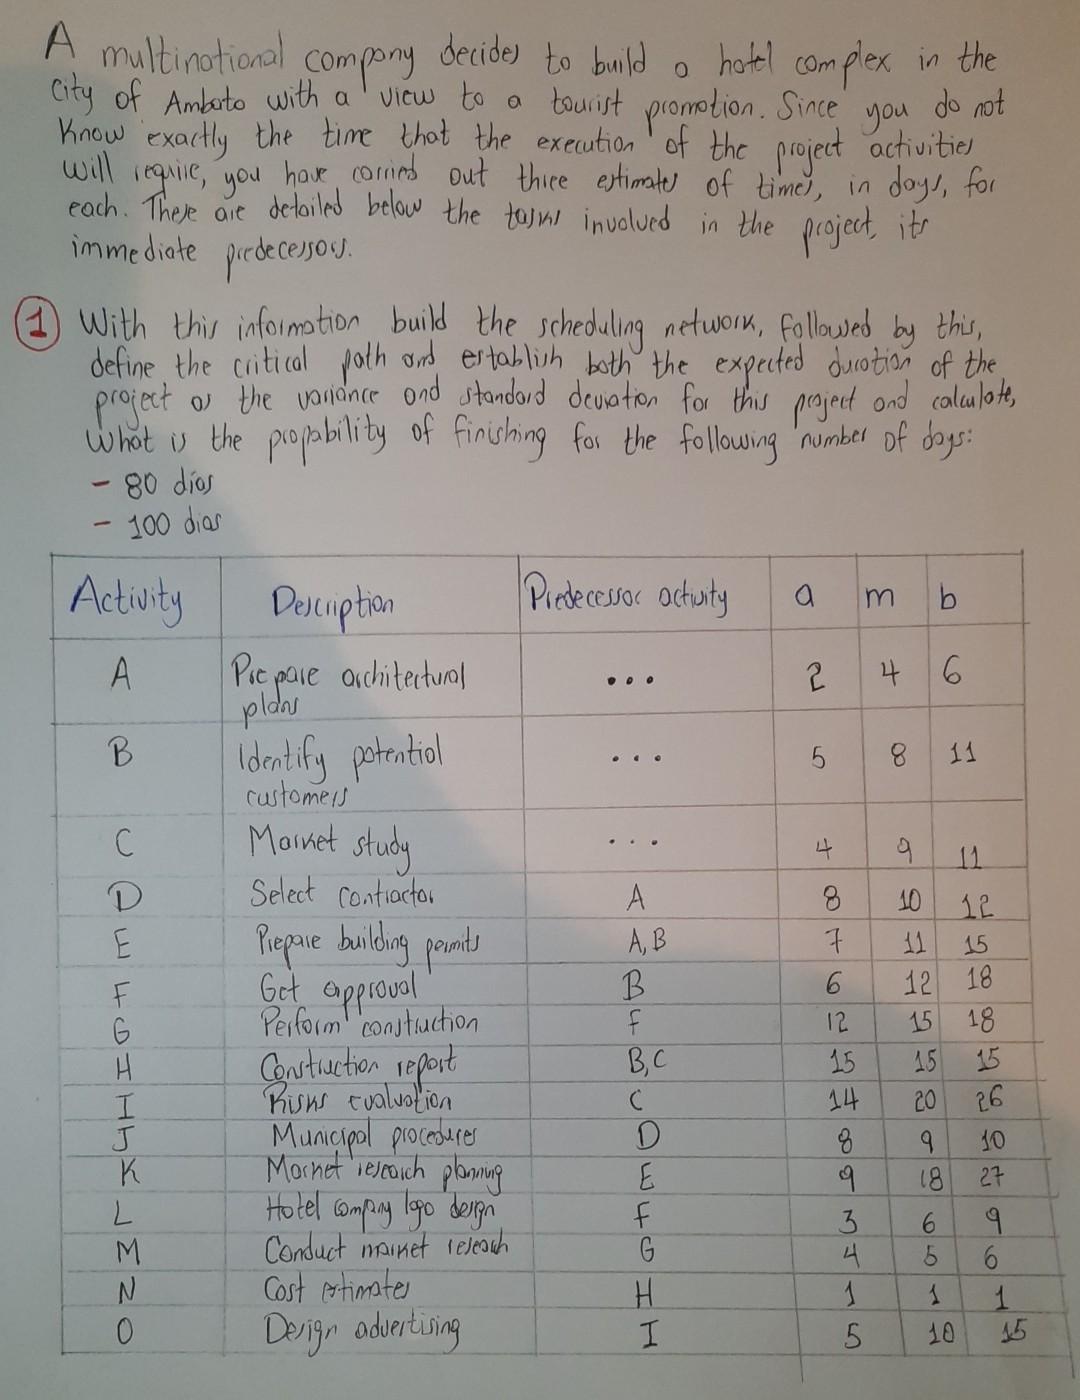 A multinational company decides to build a hotel complex in the
City of Ambato with a view to a tourist promotion. Since you do not
Know exactly the time that the execution of the project activities
will require, you have carried out three estimates of times, in days, for
each. There are detailed below the tasks involved in the project, its
immediate predecessors.
1 With this information build the scheduling network, followed by this,
define the critical path and establish both the expected duration of the
project as the variance and standard deviation for this project and calculate,
What is the propability of finishing for the following number of days:
- 80 dias
- 100 dias
Activity Description Predecessor activity a m b
A Prepare architectural plans ... 2 4 6
B Identify potential customers ... 5 8 11
C Market study ... 4 9 11
D Select contractor A 8 10 12
E Prepare building permits A, B 7 11 15
F Get approval B 6 12 18
G Perform construction F 12 15 18
H Construction report B, C 15 15 15
I Risks evaluation C 14 20 26
J Municipal procedures D 8 9 10
K Market research planning E 9 18 27
L Hotel company logo design F 3 6 9
M Conduct market reseach G 4 5 6
N Cost estimates H 1 1 1
O Design advertising I 5 10 15